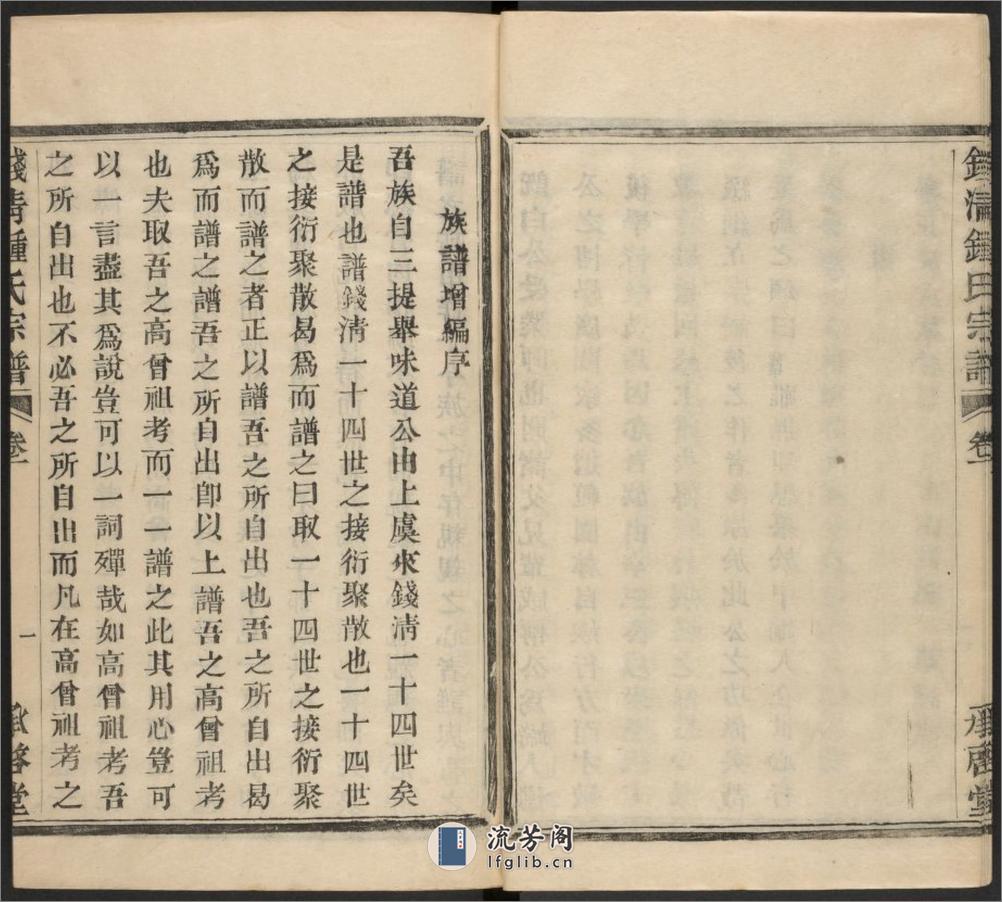 錢清鍾氏宗譜
卷一
承啓堂
族譜增編序
吾族自三提舉味道公由上虞來錢淸一十四世矣
是譜也譜錢清一十四世之接衍聚散也一十四世
之接衍聚散曷爲而譜之曰取一十四世之接衍聚
散而譜之者正以譜吾之所自出也吾之所自出曷
爲而譜之譜吾之所自出卽以上譜吾之高曾祖考
也夫取吾之高曾祖考而一一譜之此其用心豈可
以一言盡其爲說豈可以一詞殫哉如高曾祖考吾
之所自出也不必吾之所自出而凡在高曾祖考之
錢清鍾氏宗譜
卷一
一
承啓堂
流芳阁
lfglib.cn